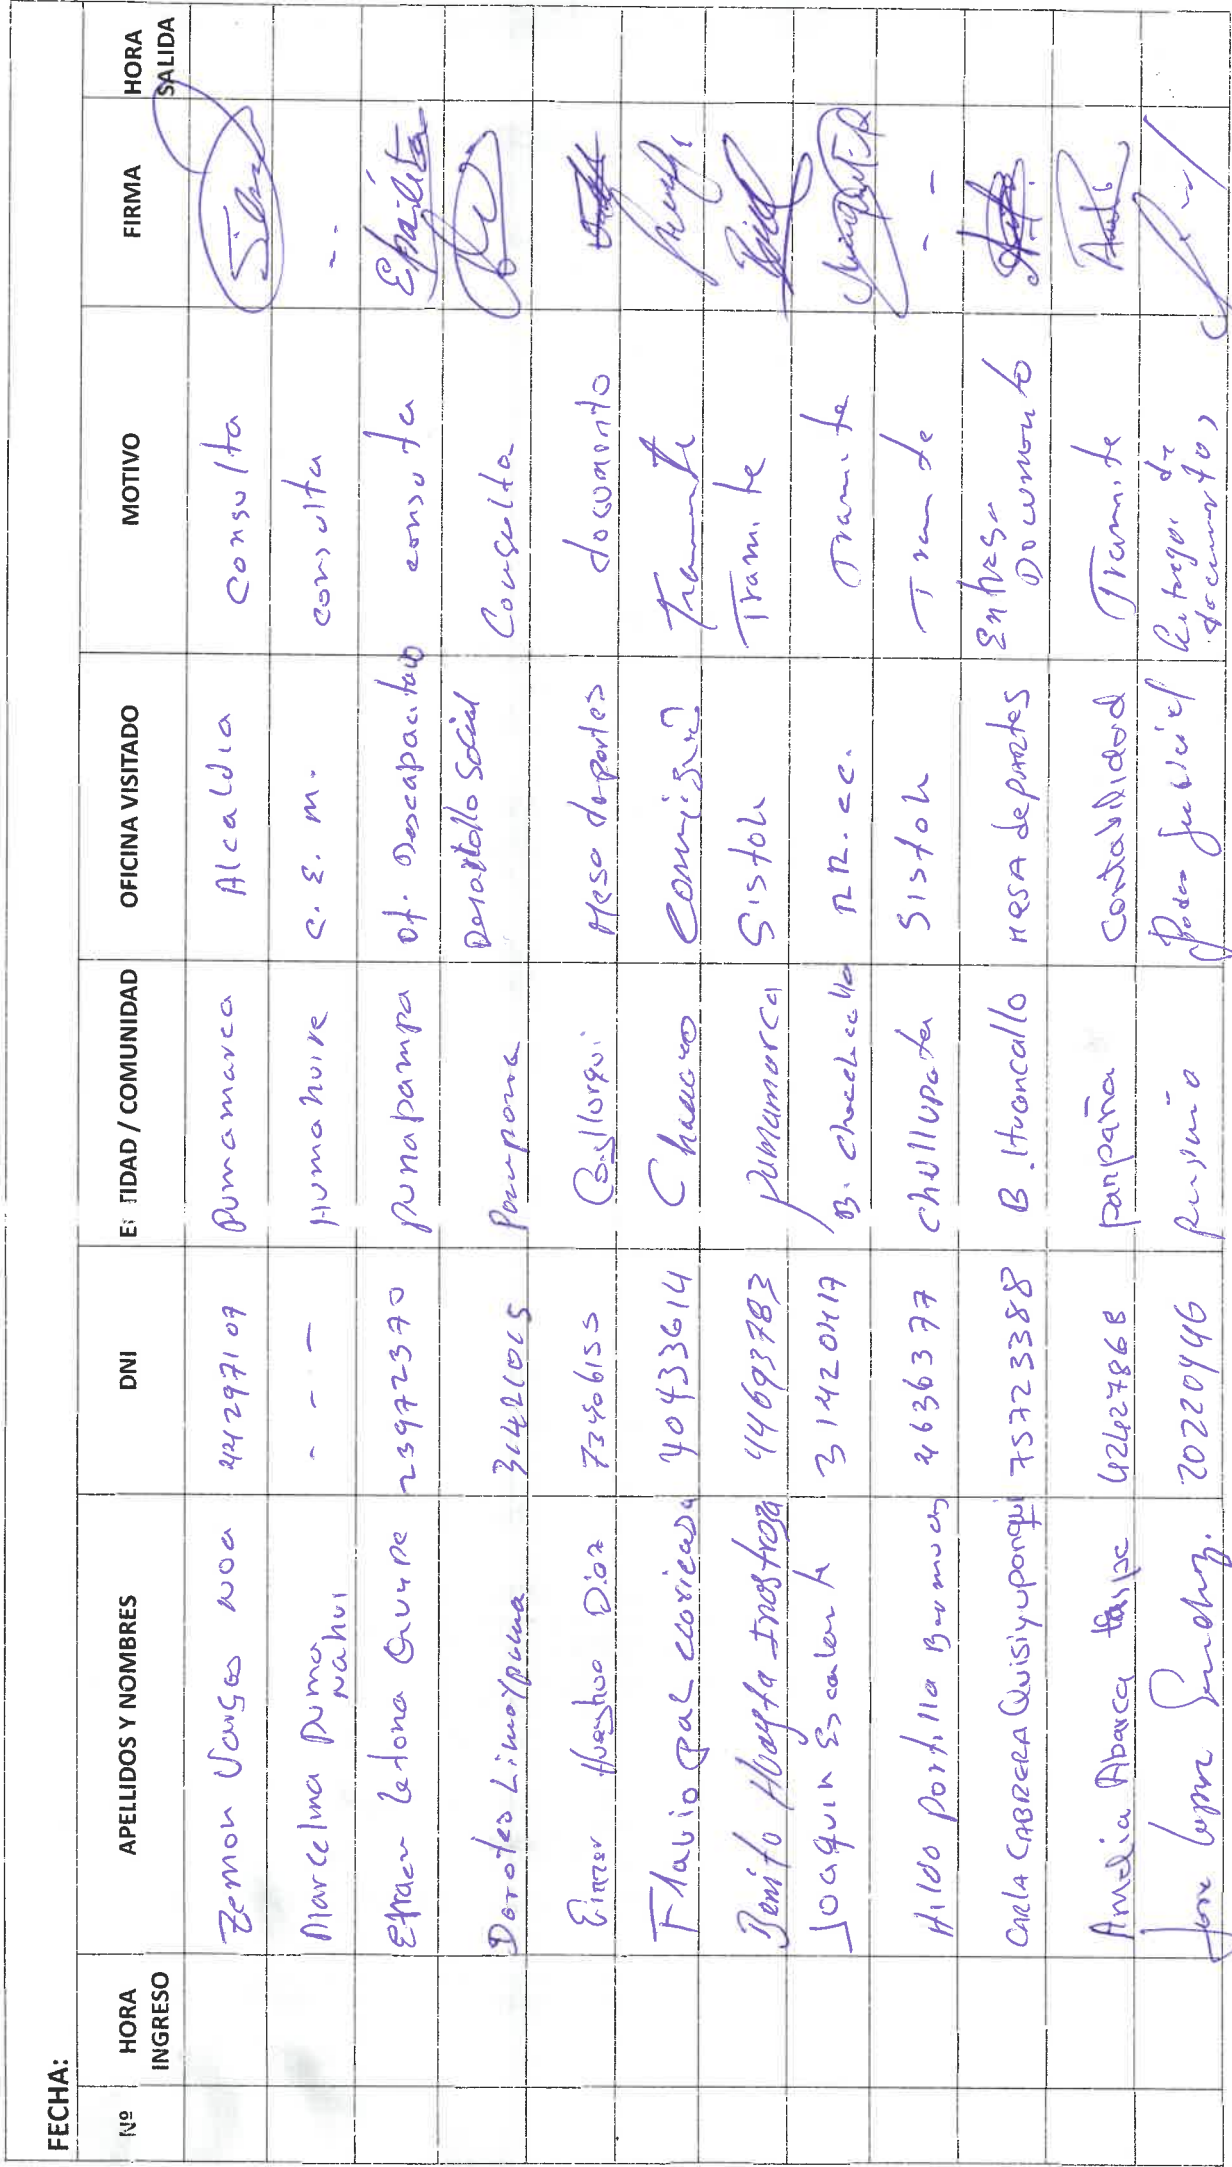 FECHA:
Nº HORA INGRESO APELLIDOS Y NOMBRES DNI ENTIDAD / COMUNIDAD OFICINA VISITADO MOTIVO FIRMA HORA SALIDA
Zemon Vargas Noa 44297107 Pumamarca Alcaldia Consulta
Marcelina Puma Nahui - - - Humahuire C. E. M. consulta - -
Efraen Letona Quispe 23972370 punapampa Of. Descapacitado consuta
Dorotea Limaypuma Desarrollo Social Consulta
Huayhua Diaz 73406155 Mesa de partes documento
Flavio paz 40433614 Tramite
Benito Huayta Inostroza 44693783 pumamarca Sistoh Tramite
Joaquin Escalante 31420417 B. RR.cc. Tramite
Hildo Portilla 46363377 Chullupata Sistoh Tramite - -
CARLA CABRERA Quisiyupanqui 75723388 B. Ituancallo MESA de pARtes Entrega Documento
Amelia Abarca 42427868 panpaña Contabilidad Tramite
Jose 20220446 Poder Judicial de documentos